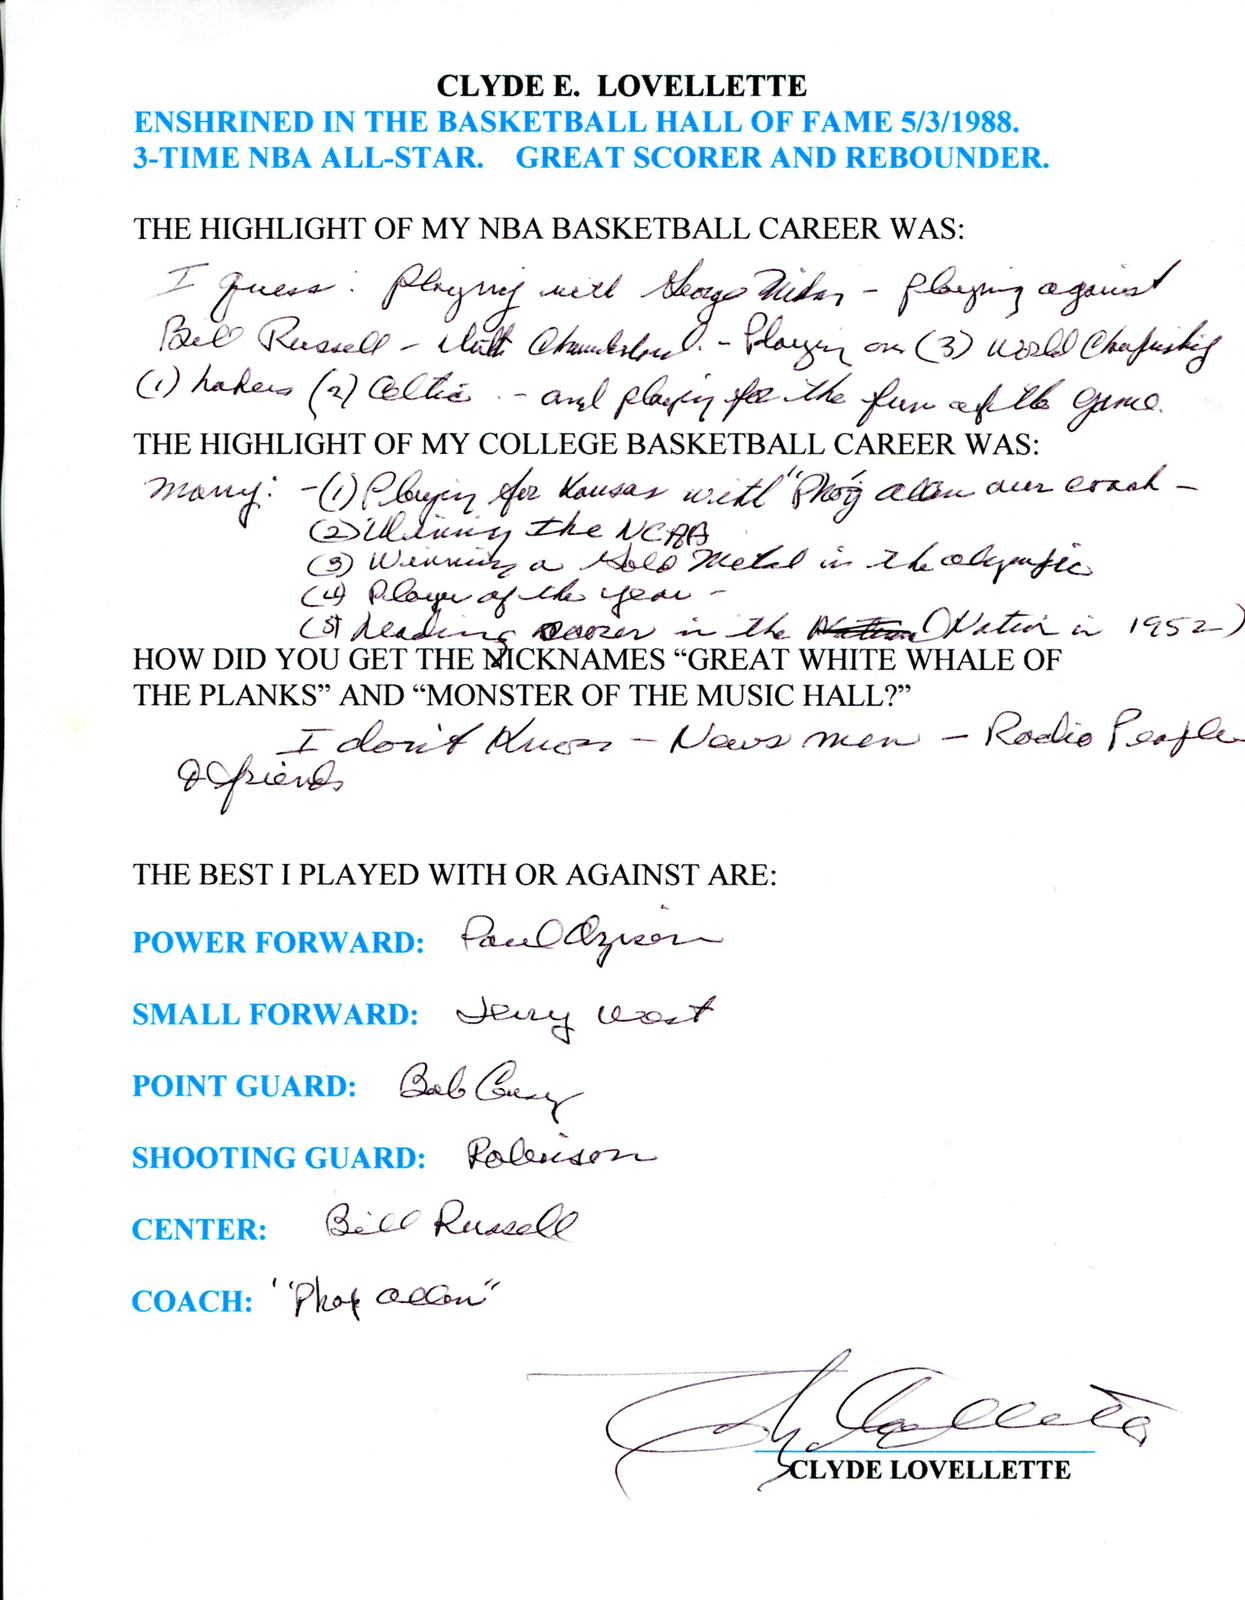 CLYDE E. LOVELLETTE
ENSHRINED IN THE BASKETBALL HALL OF FAME 5/3/1988.
3-TIME NBA ALL-STAR. GREAT SCORER AND REBOUNDER.
THE HIGHLIGHT OF MY NBA BASKETBALL CAREER WAS:
I guess: Playing with George Mikan - playing against
Bill Russell - Wilt Chamberland. - Playing on (3) World Championship
(1) Lakers (2) Celtic - and playing for the fun of the game.
THE HIGHLIGHT OF MY COLLEGE BASKETBALL CAREER WAS:
Many: - (1) Playing for Kansas with "Phog allen our coach -
(2) Winning the NCAA
(3) Winning a Gold Metal in the olympic
(4) Player of the year -
(5) Leading scorer in the Nation (Nation in 1952)
HOW DID YOU GET THE NICKNAMES “GREAT WHITE WHALE OF
THE PLANKS” AND “MONSTER OF THE MUSIC HALL?”
I don't Know - News men - Radio People
& friends
THE BEST I PLAYED WITH OR AGAINST ARE:
POWER FORWARD: Paul Arizon
SMALL FORWARD: Jerry West
POINT GUARD: Bob Cousy
SHOOTING GUARD: Robinson
CENTER: Bill Russell
COACH: "Phog allen"
Clyde Lovellette
CLYDE LOVELLETTE